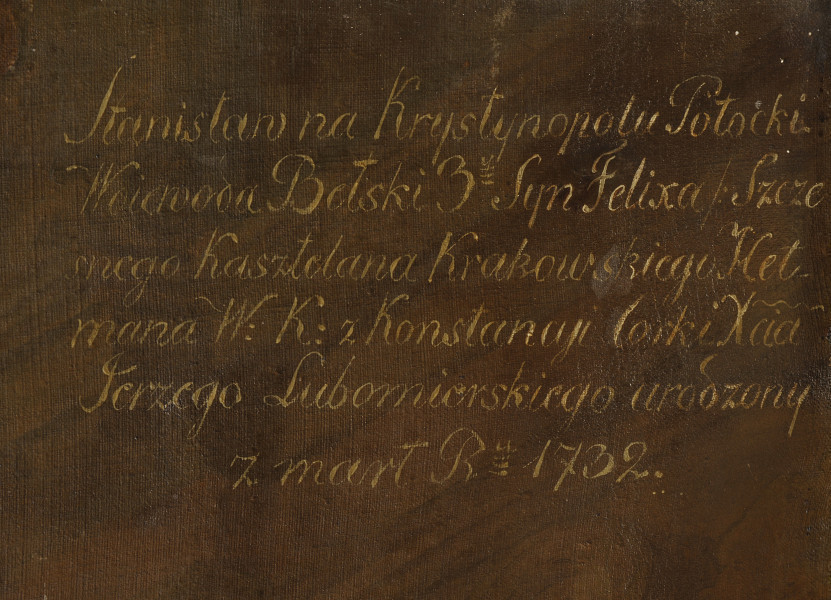 Stanisław na Krystynopolu Potocki
Woiewoda Bełski 3ci Syn Felixa /: Szcze
snego Kasztelana Krakowskiego Het-
mana W: K: z Konstancji Corki Xcia
Jerzego Lubomierskiego urodzony
zmarł R: 1732.